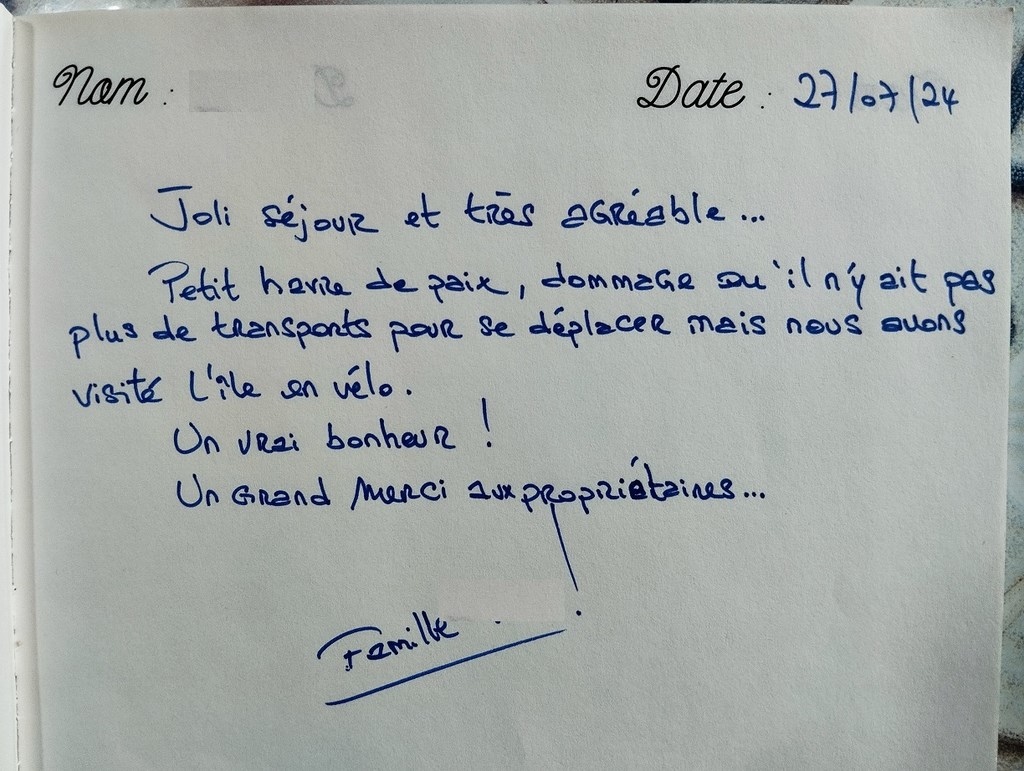 Nom :
Date : 27/07/24
Joli séjour et très agréable...
Petit havre de paix, dommage qu'il n'y ait pas
plus de transports pour se déplacer mais nous avons
visité l'île en vélo.
Un vrai bonheur !
Un grand merci aux propriétaires...
Famille